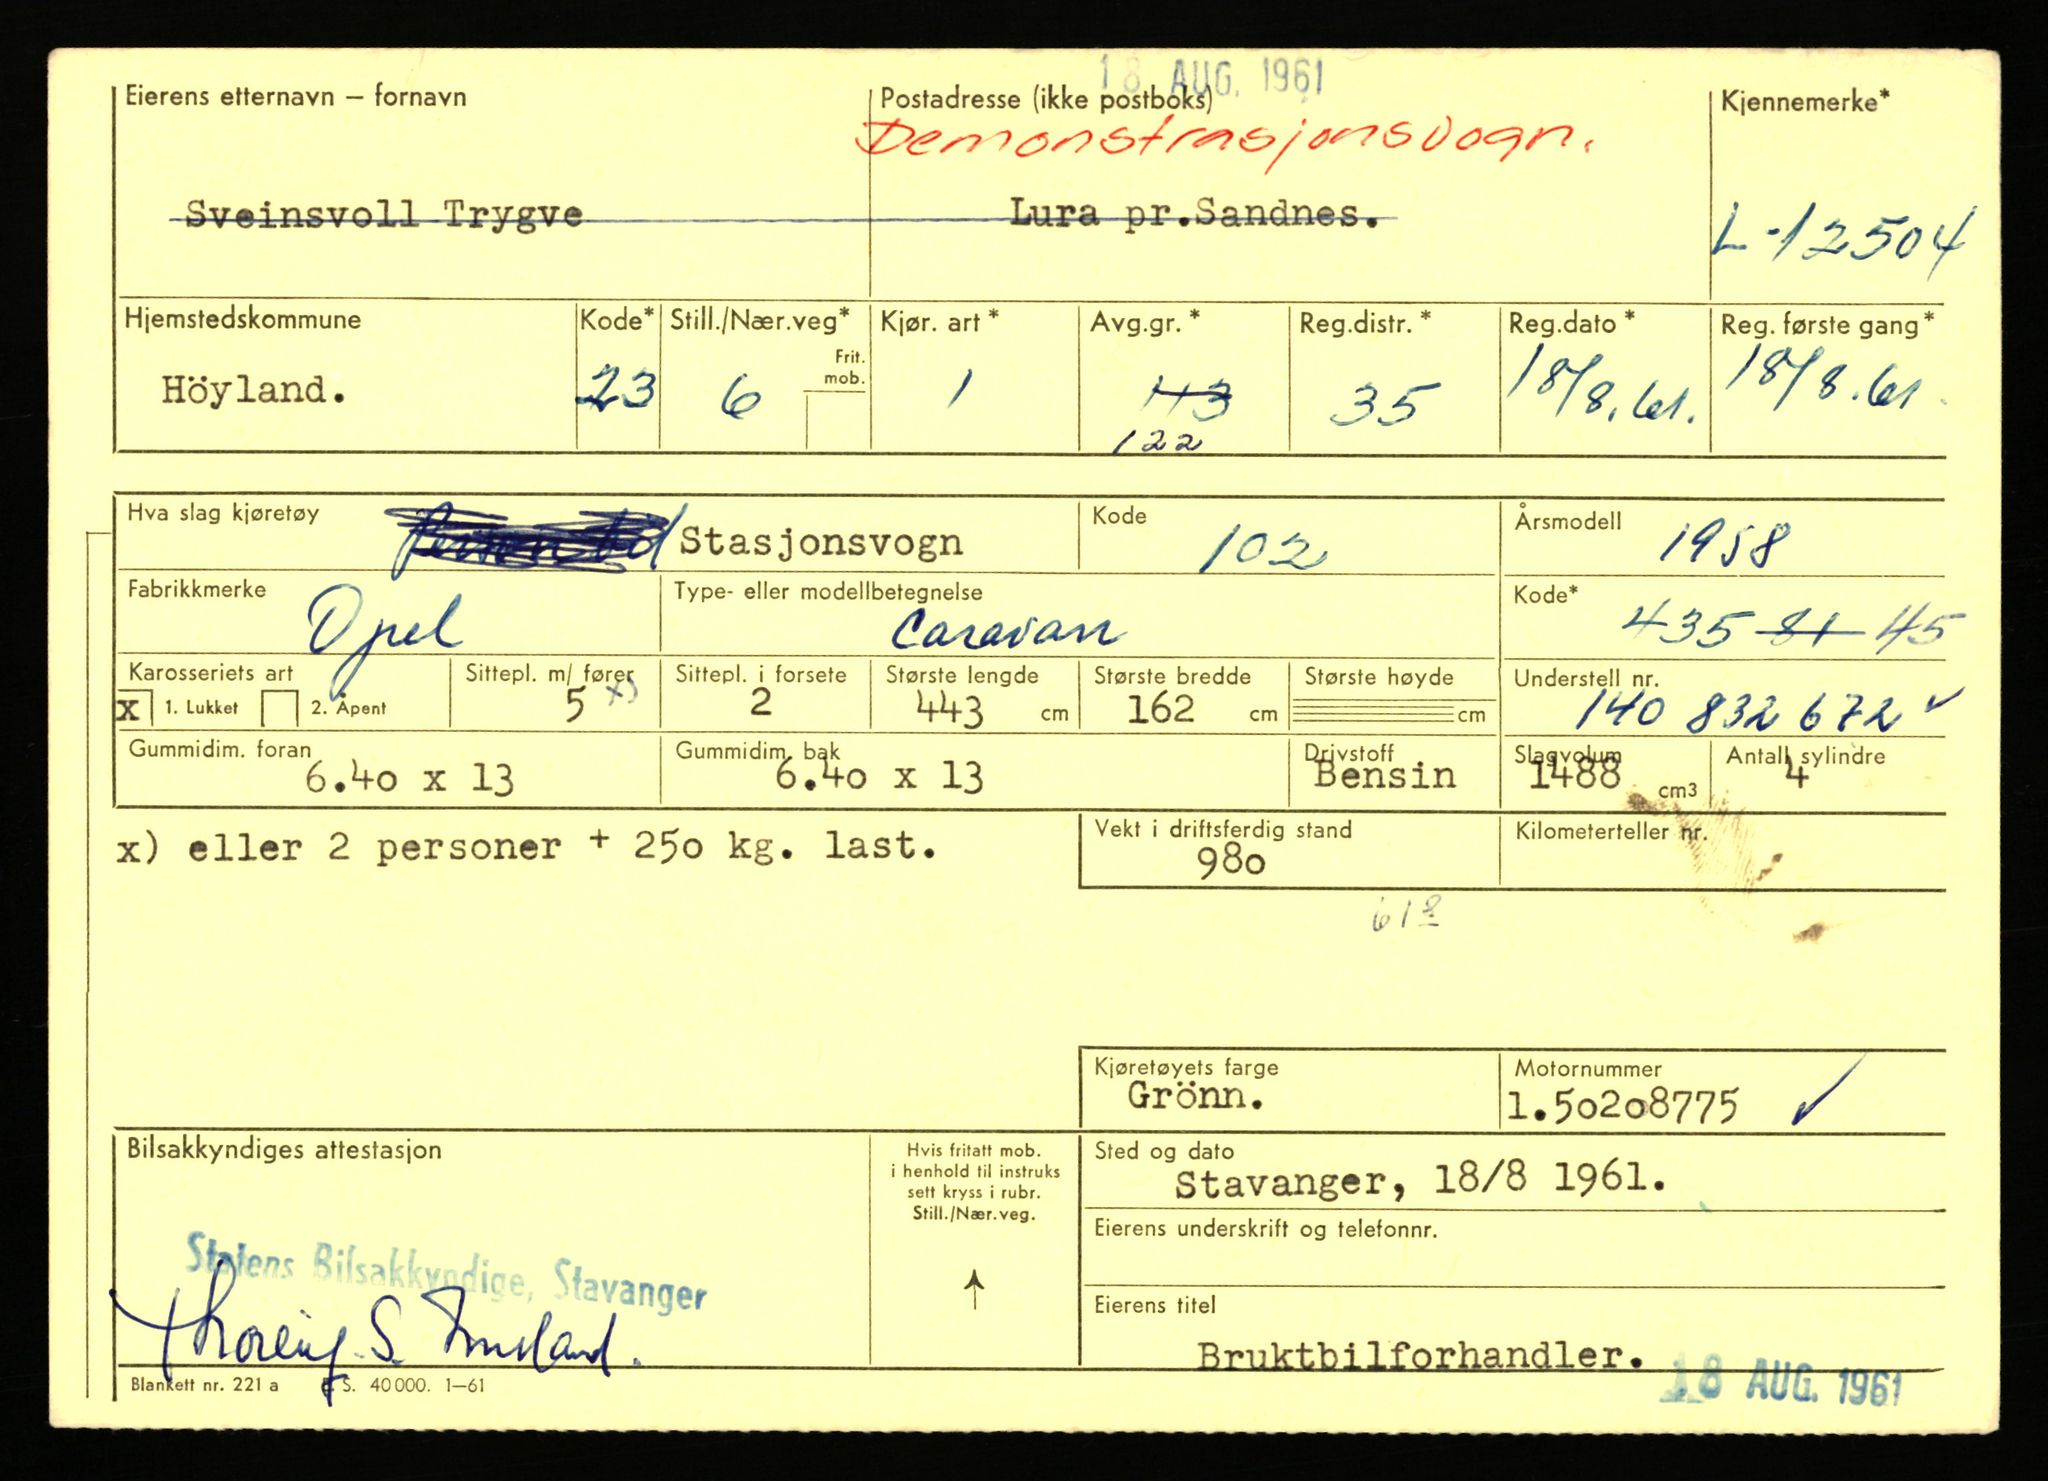 18 AUG. 1961
Eierens etternavn – fornavn
Postadresse (ikke postboks)
Kjennemerke*
Demonstrasjonsvogn.
Sveinsvoll Trygve
Lura pr.Sandnes.
L-12504
Hjemstedskommune
Kode*
Still./Nær.veg*
Kjør. art *
Avg.gr. *
Reg.distr. *
Reg.dato *
Reg. første gang *
Frit.
mob.
Höyland.
23
6
1
113
122
35
18/8.61.
18/8.61.
Hva slag kjøretøy
Stasjonsvogn
Kode
102
Årsmodell
1958
Fabrikkmerke
Opel
Type- eller modellbetegnelse
Caravan
Kode*
435 81 45
Karosseriets art
x 1. Lukket 2. Åpent
Sittepl. m/ fører
5 x)
Sittepl. i forsete
2
Største lengde
443 cm
Største bredde
162 cm
Største høyde
cm
Understell nr.
140 832 672 ✓
Gummidim. foran
6.40 x 13
Gummidim. bak
6.40 x 13
Drivstoff
Bensin
Slagvolum
1488 cm3
Antall sylindre
4
x) eller 2 personer + 250 kg. last.
Vekt i driftsferdig stand
980
Kilometerteller nr.
618
Kjøretøyets farge
Grönn.
Motornummer
1.50208775 ✓
Bilsakkyndiges attestasjon
Hvis fritatt mob.
i henhold til instruks
sett kryss i rubr.
Still./Nær.veg.
↑
Sted og dato
Stavanger, 18/8 1961.
Eierens underskrift og telefonnr.
Statens Bilsakkyndige, Stavanger
Eierens titel
Bruktbilforhandler.
18 AUG. 1961
Blankett nr. 221 a
S. 40 000. 1–61